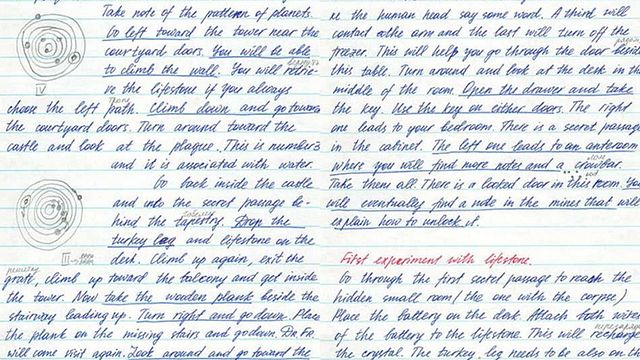 Take note of the pattern of planets.
Go left toward the tower near the
courtyard doors. You will be able
to climb the wall. You will retrie-
ve the lifestone if you always
IV
choose the left path. Climb down and go towards
the courtyard doors. Turn around toward the
castle and look at the plague. This is number 3
and it is associated with water.
Go back inside the castle
and into the secret passage be-
hind the tapestry. Drop the
turkey leg and lifestone on the
III
desk. Climb up again, exit the
grate, climb up toward the falcony and get inside
the tower. Now take the wooden plank beside the
stairway leading up. Turn right and go down. Place
the plank on the missing stairs and go down. Dr. Fr.
will come visit again. Look around and go toward the
re the human head say some word. A third will
contact othe arm and the last will turn off the
freezer. This will help you go through the door beside
this table. Turn around and look at the desk in the
middle of the room. Open the drawer and take
the key. Use the key on either doors. The right
one leads to your bedroom. There is a secret passage
in the cabinet. The left one leads to an anteroom
where you will find more notes and a crowbar.
Take them all. There is a locked door in this room. You
will eventually find a note in the mines that will
explain how to unlock it.
First experiment with lifestone.
Go through the first secret passage to reach the
hidden small room (the one with the corpse)
Place the battery on the desk. Attach both wires
of the battery to the lifestone. This will recharge
the crystal. The turkey leg needs to be also on